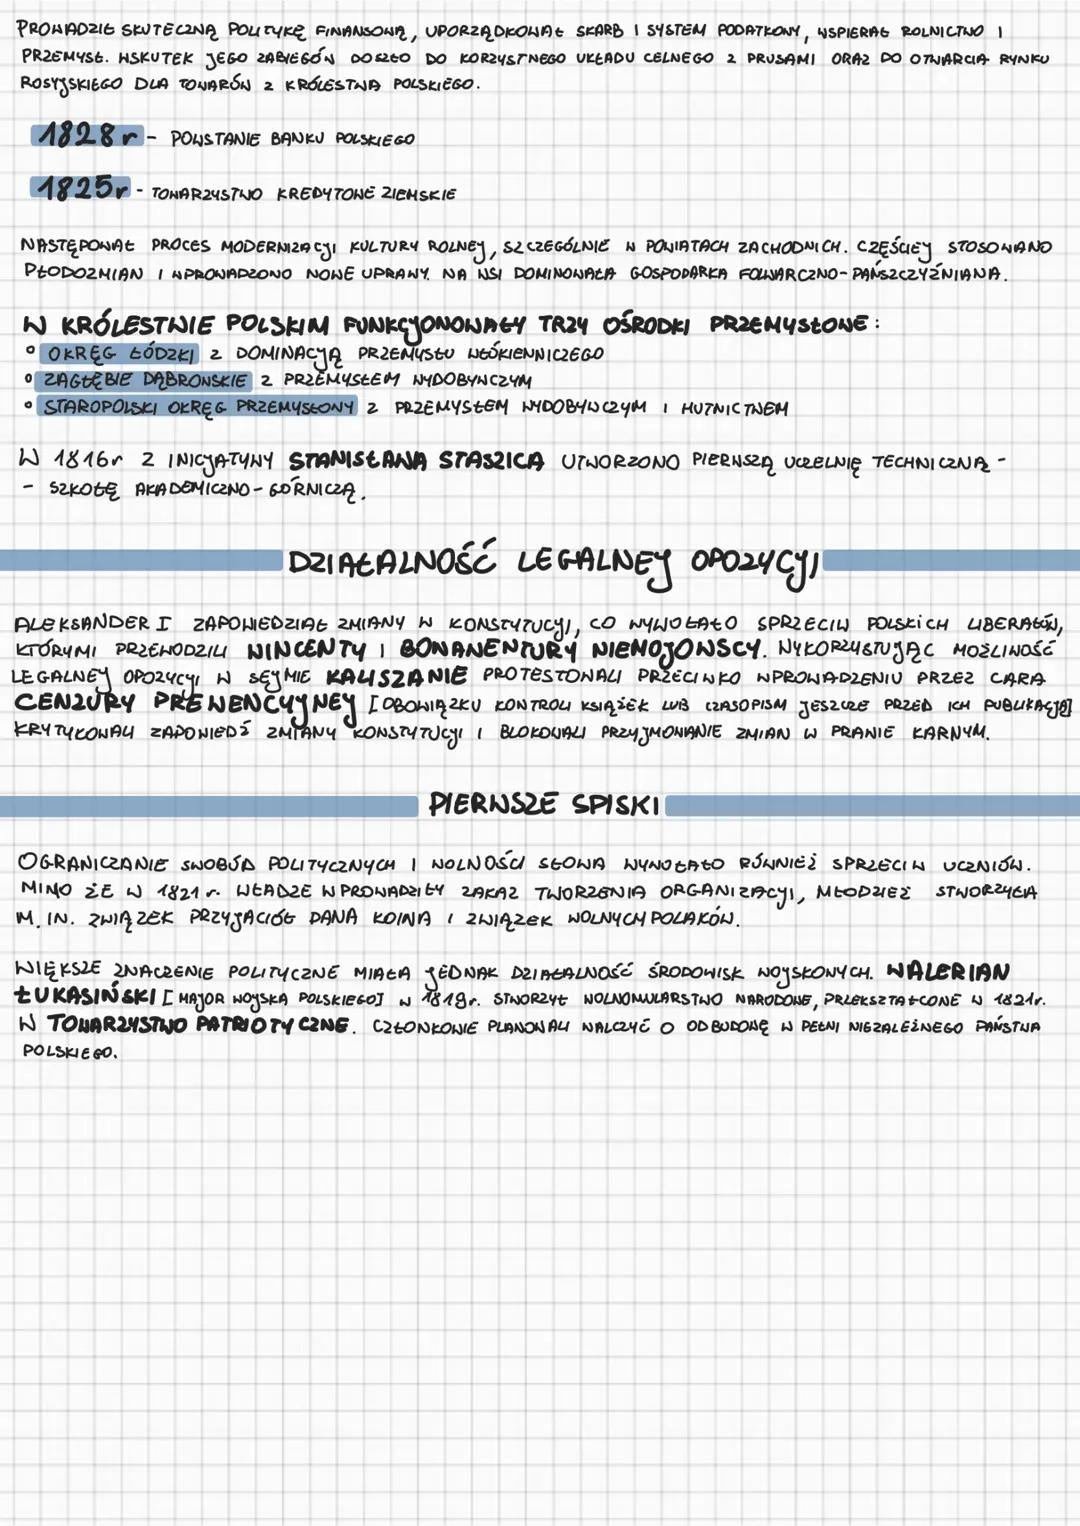 PROWADZIŁ SKUTECZNĄ POLITYKĘ FINANSOWĄ, UPORZĄDKOWAŁ SKARB I SYSTEM PODATKOWY, WSPIERAŁ ROLNICTWO I
PRZEMYSŁ. WSKUTEK JEGO ZABIEGÓW DOSZŁO DO KORZYSTNEGO UKŁADU CELNEGO Z PRUSAMI ORAZ DO OTWARCIA RYNKU
ROSYJSKIEGO DLA TOWARÓW Z KRÓLESTWA POLSKIEGO.
1828r - POWSTANIE BANKU POLSKIEGO
1825r - TOWARZYSTWO KREDYTOWE ZIEMSKIE
NASTĘPOWAŁ PROCES MODERNIZACJI KULTURY ROLNEJ, SZCZEGÓLNIE W POWIATACH ZACHODNICH. CZĘŚCIEJ STOSOWANO
PŁODOZMIAN I WPROWADZONO NOWE UPRAWY. NA WSI DOMINOWAŁA GOSPODARKA FOLWARCZNO-PAŃSZCZYŹNIANA.
W KRÓLESTWIE POLSKIM FUNKCJONOWAŁY TRZY OŚRODKI PRZEMYSŁOWE:
° OKRĘG ŁÓDZKI Z DOMINACJĄ PRZEMYSŁU WŁÓKIENNICZEGO
° ZAGŁĘBIE DĄBROWSKIE Z PRZEMYSŁEM WYDOBYWCZYM
° STAROPOLSKI OKRĘG PRZEMYSŁOWY Z PRZEMYSŁEM WYDOBYWCZYM I HUTNICTWEM
W 1816r Z INICJATYWY STANISŁAWA STASZICA UTWORZONO PIERWSZĄ UCZELNIĘ TECHNICZNĄ -
- SZKOŁĘ AKADEMICZNO-GÓRNICZĄ.
DZIAŁALNOŚĆ LEGALNEJ OPOZYCJI
ALEKSANDER I ZAPOWIEDZIAŁ ZMIANY W KONSTYTUCJI, CO WYWOŁAŁO SPRZECIW POLSKICH LIBERAŁÓW,
KTÓRYMI PRZEWODZILI WINCENTY I BONAWENTURY NIEMOJOWSCY. WYKORZYSTUJĄC MOŻLIWOŚĆ
LEGALNEJ OPOZYCJI W SEJMIE KALISZANIE PROTESTOWALI PRZECIWKO WPROWADZENIU PRZEZ CARA
CENZURY PREWENCYJNEJ [OBOWIĄZKU KONTROLI KSIĄŻEK LUB CZASOPISM JESZCZE PRZED ICH PUBLIKACJĄ]
KRYTYKOWALI ZAPOWIEDŹ ZMIANY KONSTYTUCJI I BLOKOWALI PRZYJMOWANIE ZMIAN W PRAWIE KARNYM.
PIERWSZE SPISKI
OGRANICZANIE SWOBÓD POLITYCZNYCH I WOLNOŚCI SŁOWA WYWOŁAŁO RÓWNIEŻ SPRZECIW UCZNIÓW.
MIMO ŻE W 1821 r. WŁADZE WPROWADZIŁY ZAKAZ TWORZENIA ORGANIZACJI, MŁODZIEŻ STWORZYŁA
M. IN. ZWIĄZEK PRZYJACIÓŁ PANA KOINA I ZWIĄZEK WOLNYCH POLAKÓW.
WIĘKSZE ZNACZENIE POLITYCZNE MIAŁA JEDNAK DZIAŁALNOŚĆ ŚRODOWISK WOJSKOWYCH. WALERIAN
ŁUKASIŃSKI [MAJOR WOJSKA POLSKIEGO] W 1819r. STWORZYŁ WOLNOMULARSTWO NARODOWE, PRZEKSZTAŁCONE W 1821r.
W TOWARZYSTWO PATRIOTYCZNE. CZŁONKOWIE PLANOWALI WALCZYĆ O ODBUDOWĘ W PEŁNI NIEZALEŻNEGO PAŃSTWA
POLSKIEGO.